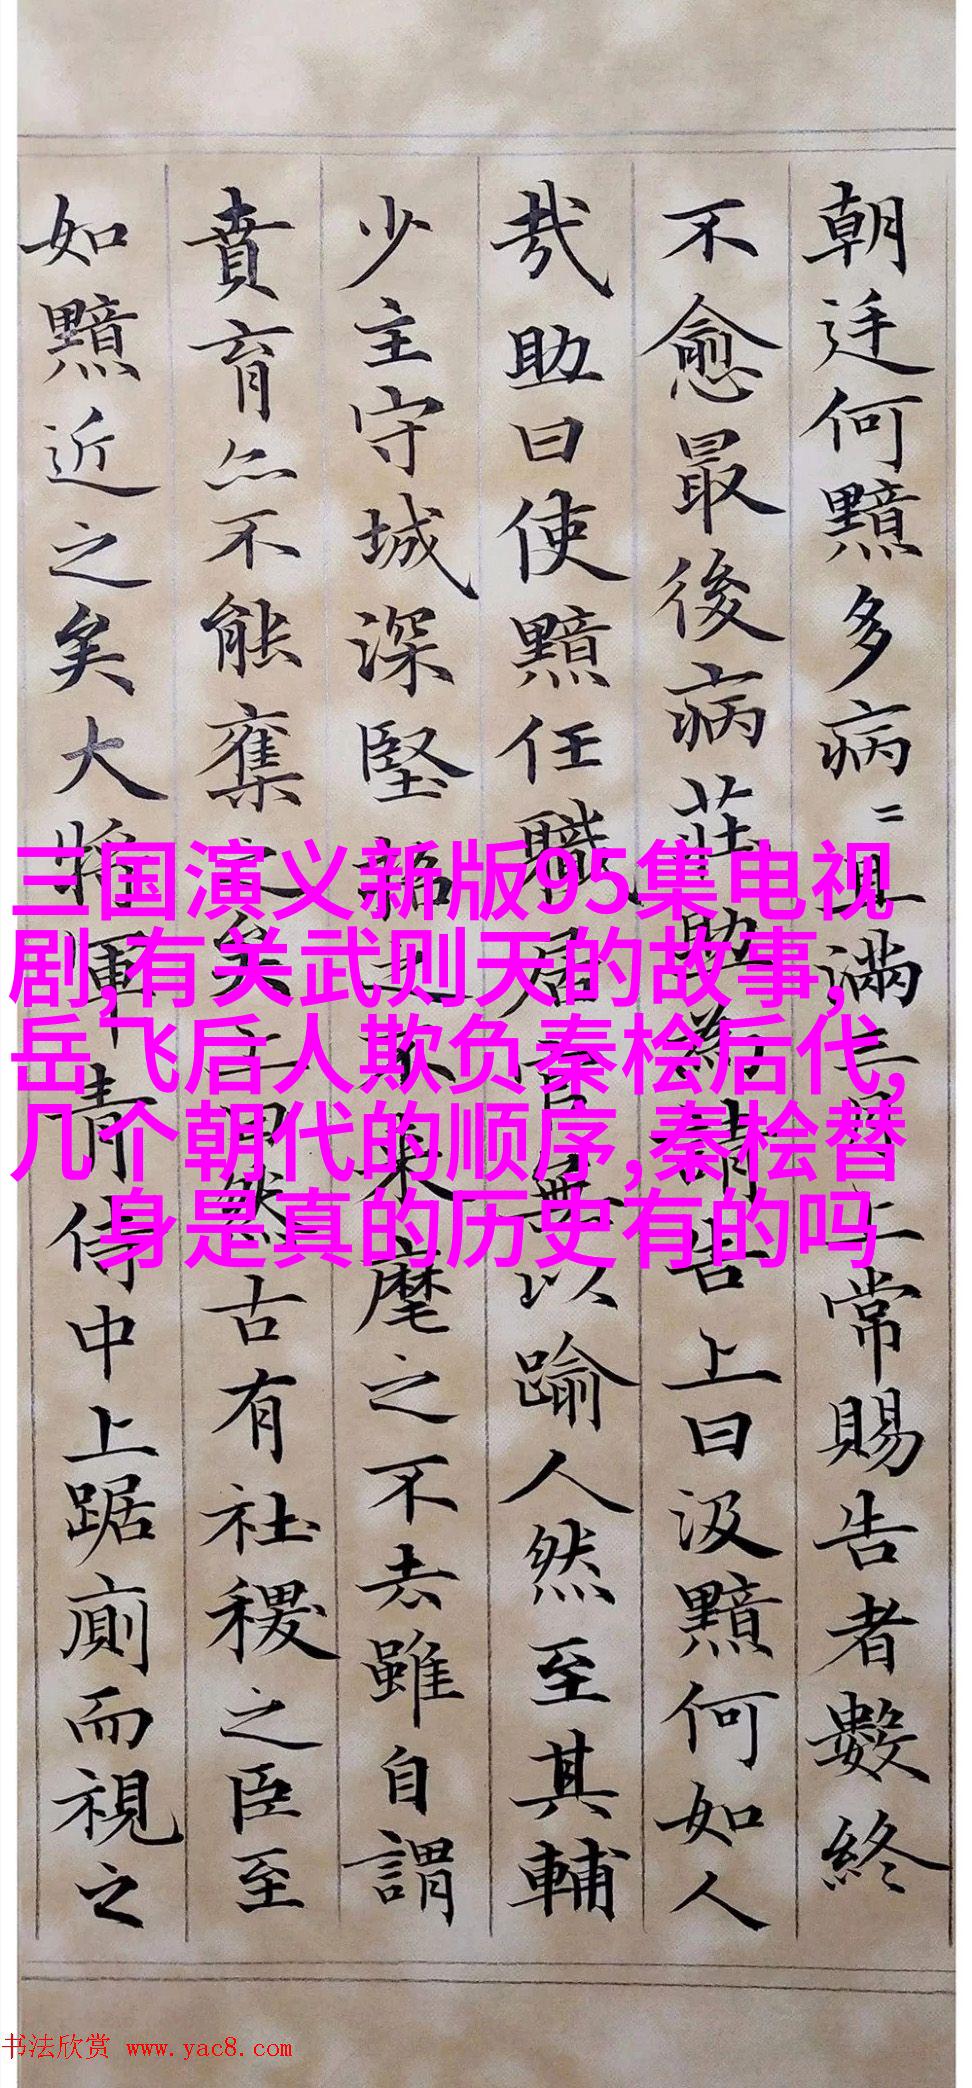 朝廷何黯多病〻且滿三月上常賜告者數終
不愈最後病莊助為請告上曰汲黯何如人
哉助曰使黯任職居官無以踰人然至其輔
少主守城深堅招之不來麾之不去雖自謂
賁育亦不能奪之矣上曰然古有社稷之臣至
如黯近之矣大將軍青侍中上踞廁而視之
三国演义新版95集电视
剧,有关武则天的故事,
岳飞后人欺负秦桧后代,
几个朝代的顺序,秦桧替
身是真的历史有的吗
书法欣赏 www.yac8.com